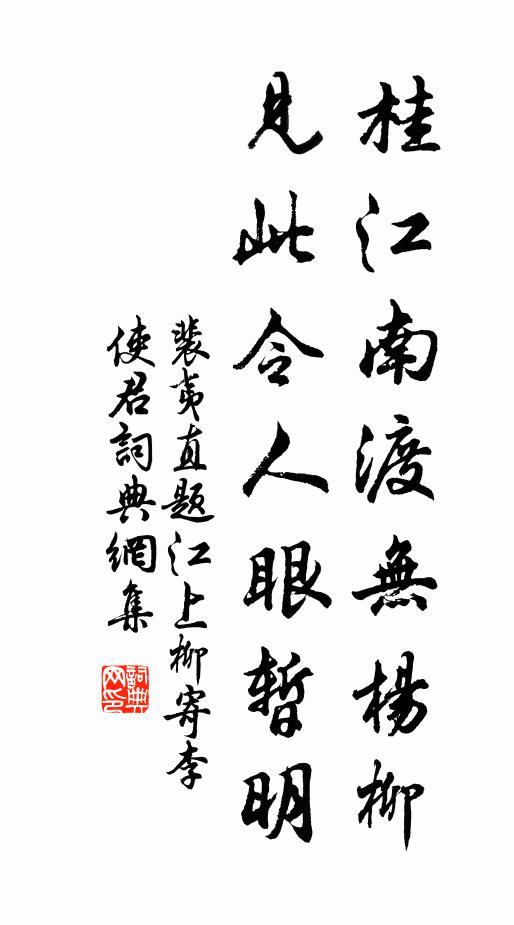 桂江南渡無楊柳
見此令人眼暫明
裴夷直题江上柳寄李
使君詞典網集
詞典
网印